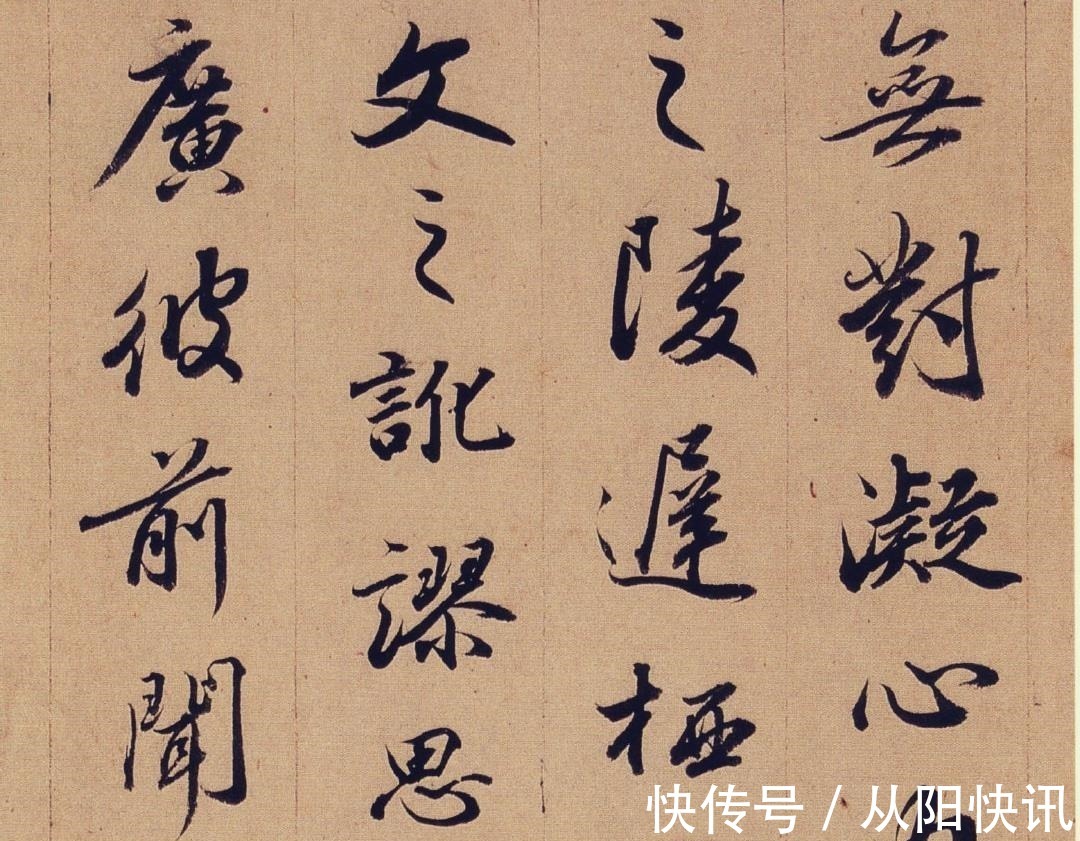 無對凝心
之陵遲栖
文之訛謬思
廣彼前聞
快传号 / 从阳快讯